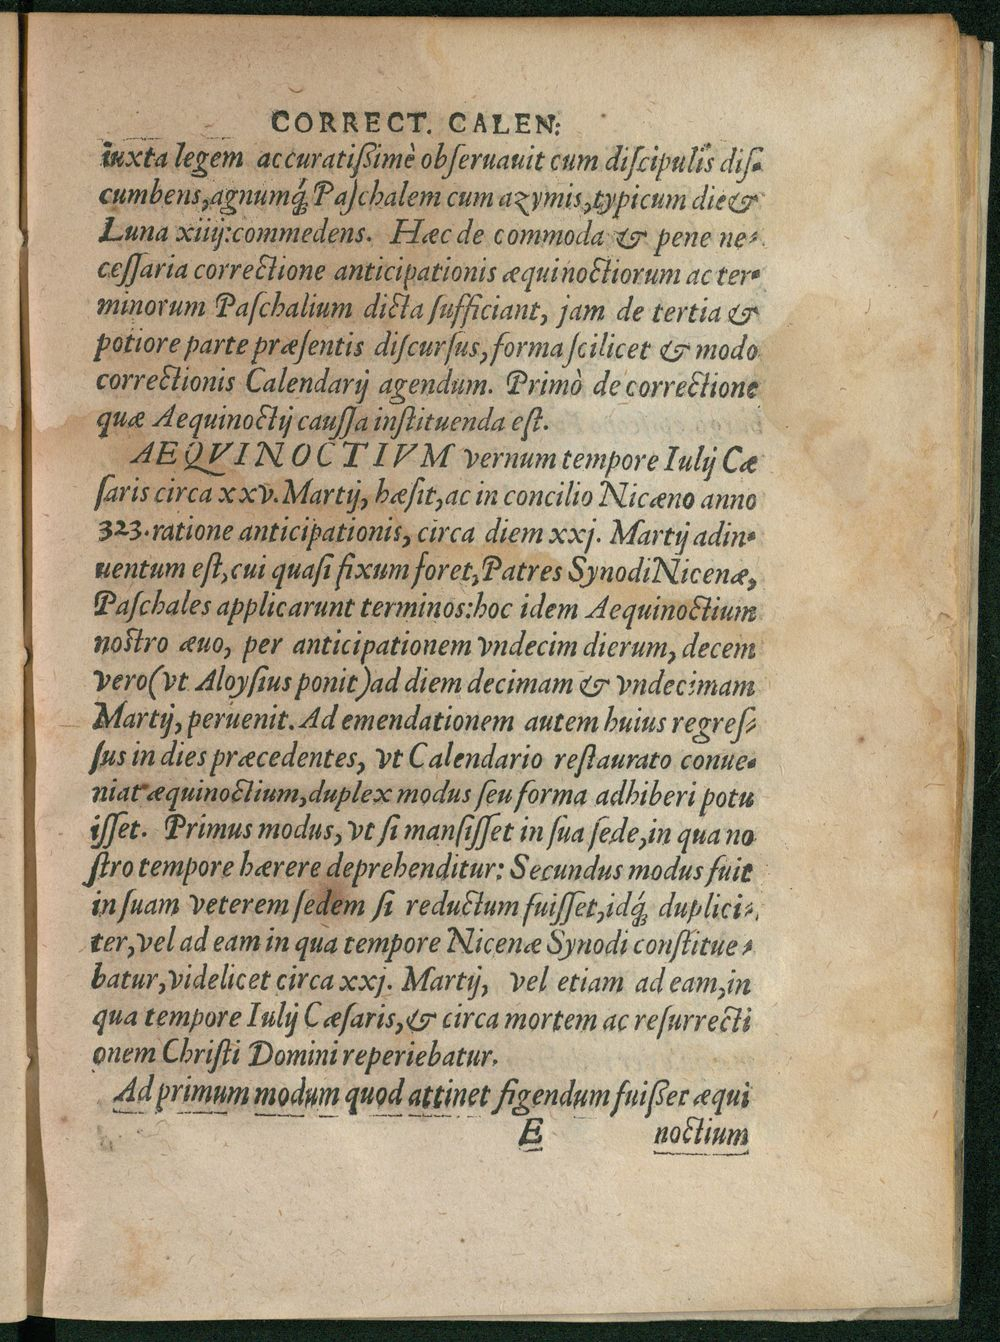 CORRECT. CALEN:
iuxta legem accuratißimè obſeruauit cum diſcipulis diſ-
cumbens, agnumq́ȝ Paſchalem cum azymis, typicum die &
Luna xiiij: commedens. Hæc de commoda & pene ne-
ceſſaria correctione anticipationis æquinoctiorum ac ter-
minorum Paſchalium dicta ſufficiant, jam de tertia &
potiore parte præſentis diſcurſus, forma ſcilicet & modo
correctionis Calendarij agendum. Primò de correctione
quæ Aequinoctij cauſſa inſtituenda eſt.
AEQVINOCTIVM vernum tempore Iulij Cæ
ſaris circa xxv. Martij, hæſit, ac in concilio Nicæno anno
323. ratione anticipationis, circa diem xxj. Martij adin-
uentum eſt, cui quaſi fixum foret, Patres Synodi Nicenæ,
Paſchales applicarunt terminos: hoc idem Aequinoctium
nostro æuo, per anticipationem vndecim dierum, decem
vero (vt Aloyſius ponit) ad diem decimam & vndecimam
Martij, peruenit. Ad emendationem autem huius regreſ-
ſus in dies præcedentes, vt Calendario reſtaurato conue-
niat æquinoctium, duplex modus ſeu forma adhiberi potu
iſſet. Primus modus, vt ſi manſiſſet in ſua ſede, in qua no
ſtro tempore hærere deprehenditur: Secundus modus fuit
in ſuam veterem ſedem ſi reductum fuiſſet, idq́ȝ duplici-
ter, vel ad eam in qua tempore Nicenæ Synodi conſtitue-
batur, videlicet circa xxj. Martij, vel etiam ad eam, in
qua tempore Iulij Cæſaris, & circa mortem ac reſurrecti
onem Chriſti Domini reperiebatur.
Ad primum modum quod attinet figendum fuißet æqui
E noctium